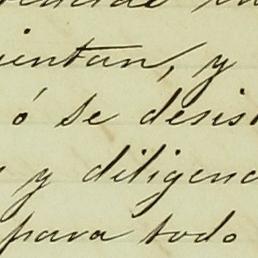 ientan, y
ó se desis
y diligenc
para todo